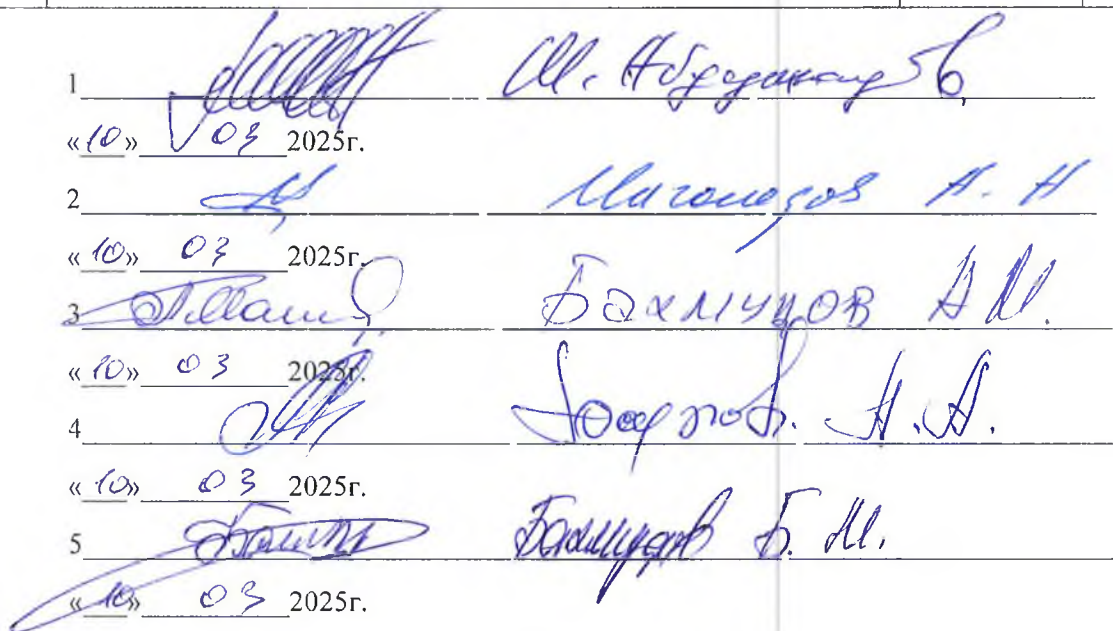 1 М.
«10» 03 2025г.
2 Магомедов А. Н
«10» 03 2025г.
3 Бахмудов А М.
«10» 03 2025г.
4 А.А.
«10» 03 2025г.
5 Бахмудов Б. М.
«10» 03 2025г.